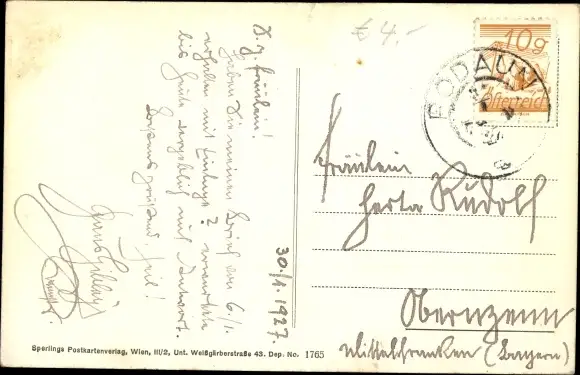 € 4.-
10g
Österreich
RODAUN
S. g. Fräulein!
Haben Sie meinen Brief vom 6./1.
erhalten mit Einlage?
bis heute vergeblich auf Antwort.
Heil!
30./1. 1927.
Fräulein
Herta Rudolf
Obernzenn
Mittelfranken (Bayern)
Sperlings Postkartenverlag, Wien, III/2, Unt. Weißgärberstraße 43. Dep. No. 1765